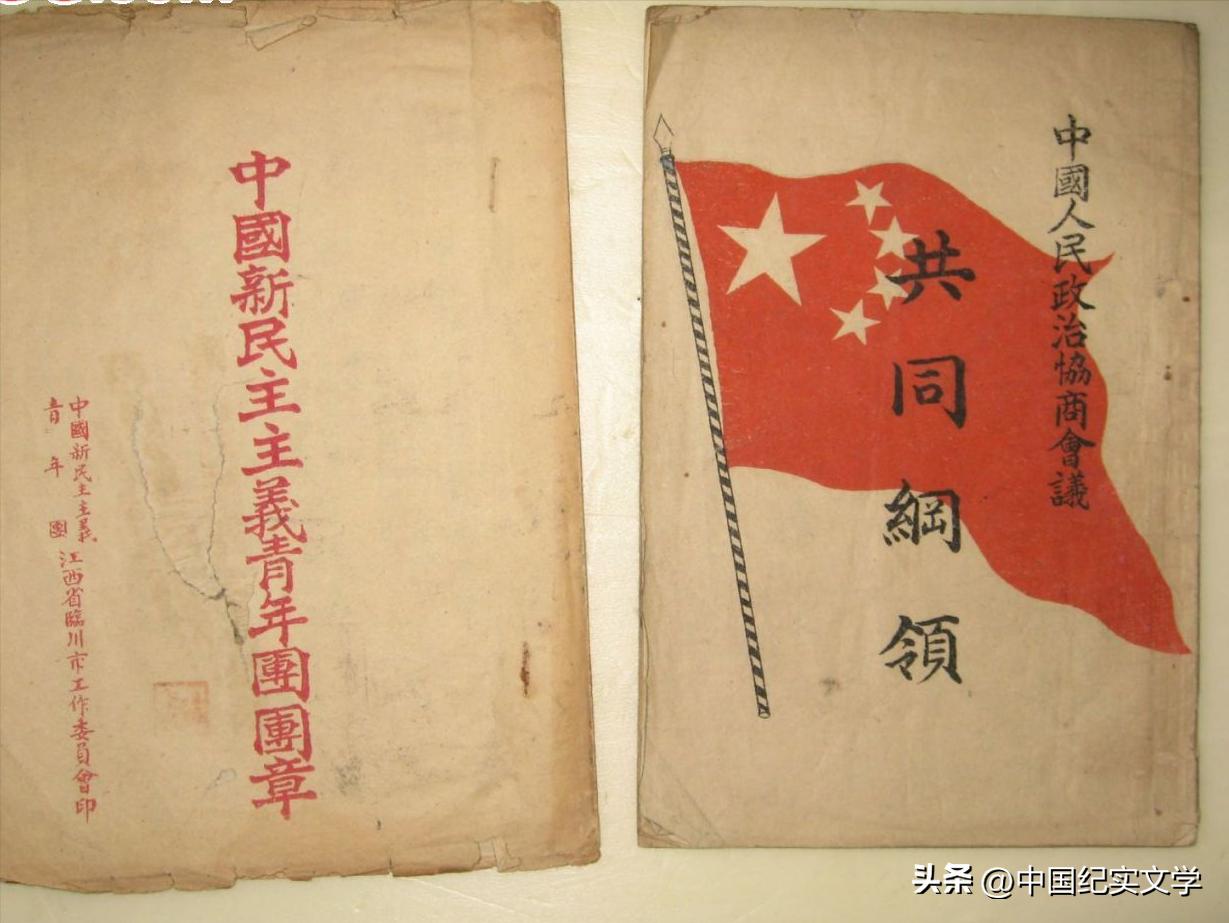 中國新民主主義青年團團章
中國新民主主義
青年團
江西省臨川市工作委員會印
中國人民政治協商會議
共同綱領
头条 @中国纪实文学